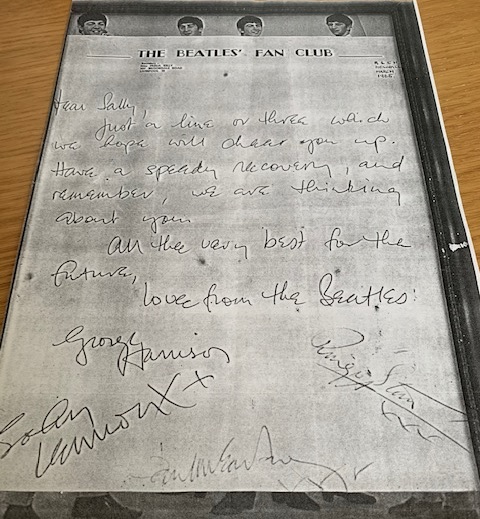 THE BEATLES' FAN CLUB
Dear Sally,
Just a line or three which
we hope will cheer you up.
Have a speedy recovery, and
remember, we are thinking
about you.
All the very best for the
future,
love from the Beatles.
George
Harrison
Ringo Starr
xxx
John
Lennon XX+
Paul McCartney